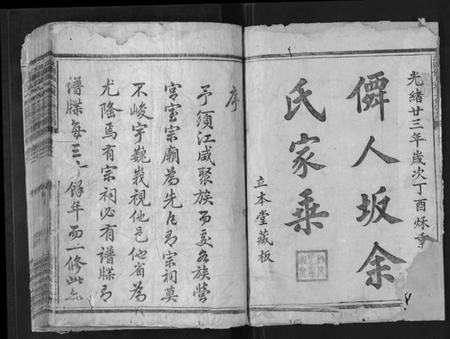 光緒廿三年歲次丁酉秌
僲人坂余
氏家乗
立本堂藏板
序
予須江咸聚族而處各族營
宮室宗廟為先凡有宗祠莫
不峻宇巍峩視他邑他省為
尤隆焉有宗祠必有譜牒有
譜牒每三十餘年而一修此亦